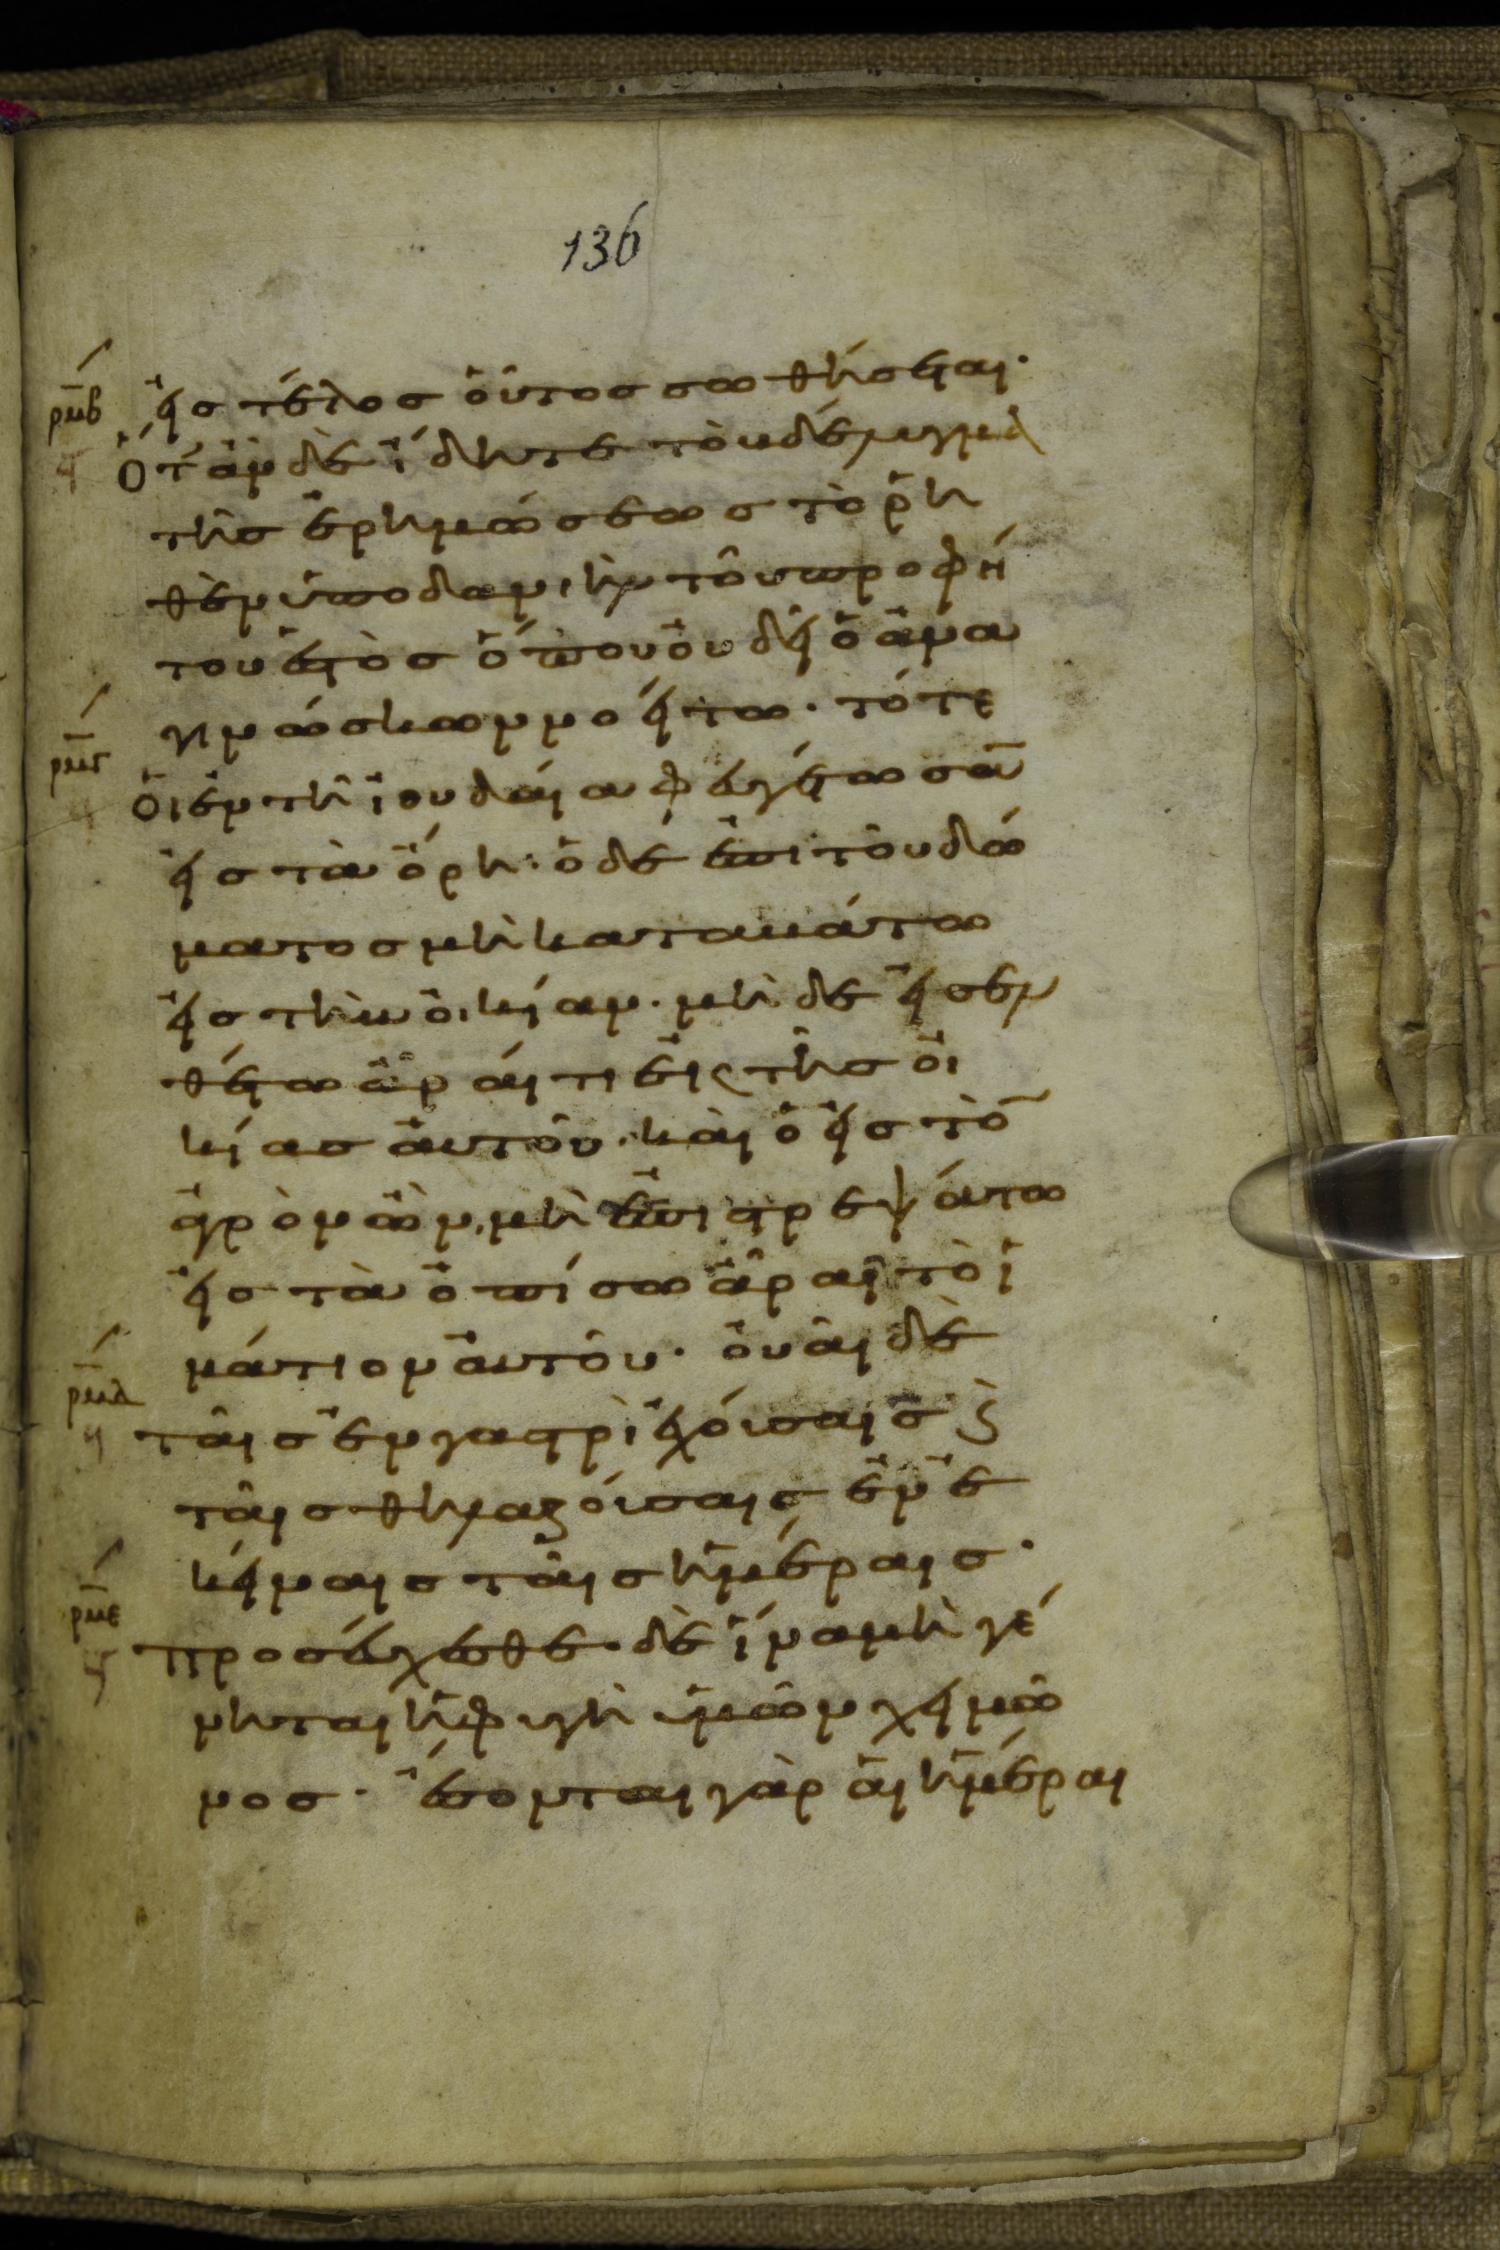 136
ρμβ εἰς τέλος οὗτος σωθήσεται·
Ὅταν δὲ ἴδητε τὸ βδέλυγμα
τῆς ἐρημώσεως τὸ ῥη
θὲν ὑπὸ δανιὴλ τοῦ προφή
του ἑστὸς ὅπου οὐ δεῖ ὁ ἀνα
γινώσκων νοείτω· τότε
ρμγ οἱ ἐν τῆ ἰουδαία φευγέτωσᾱ
εἰς τὰ ὄρη· ὁ δὲ ἐπὶ τοῦ δώ
ματος μὴ καταβάτω
εἰς τὴν οἰκίαν· μὴ δὲ εἰσελ
θέτω ἆραί τι ἐκ τῆς οἰ
κίας αὐτοῦ· καὶ ὁ εἰς τὸ̄
ἀγρὸν ὢν, μὴ ἐπιστρεψάτω
εἰς τὰ ὀπίσω ἆραι τὸ ἱ
μάτιον αὐτοῦ· οὐαὶ δὲ
ρμδ ταῖς ἐν γαστρὶ ἐχούσαις ϗ
ταῖς θηλαζούσαις ἐν ἐ
κείναις ταῖς ἡμέραις·
ρμε προσεύχεσθε δὲ ἵνα μὴ γέ
νηται ἡ φυγὴ ὑμῶν χειμῶ
νος· ἔσονται γὰρ αἱ ἡμέραι